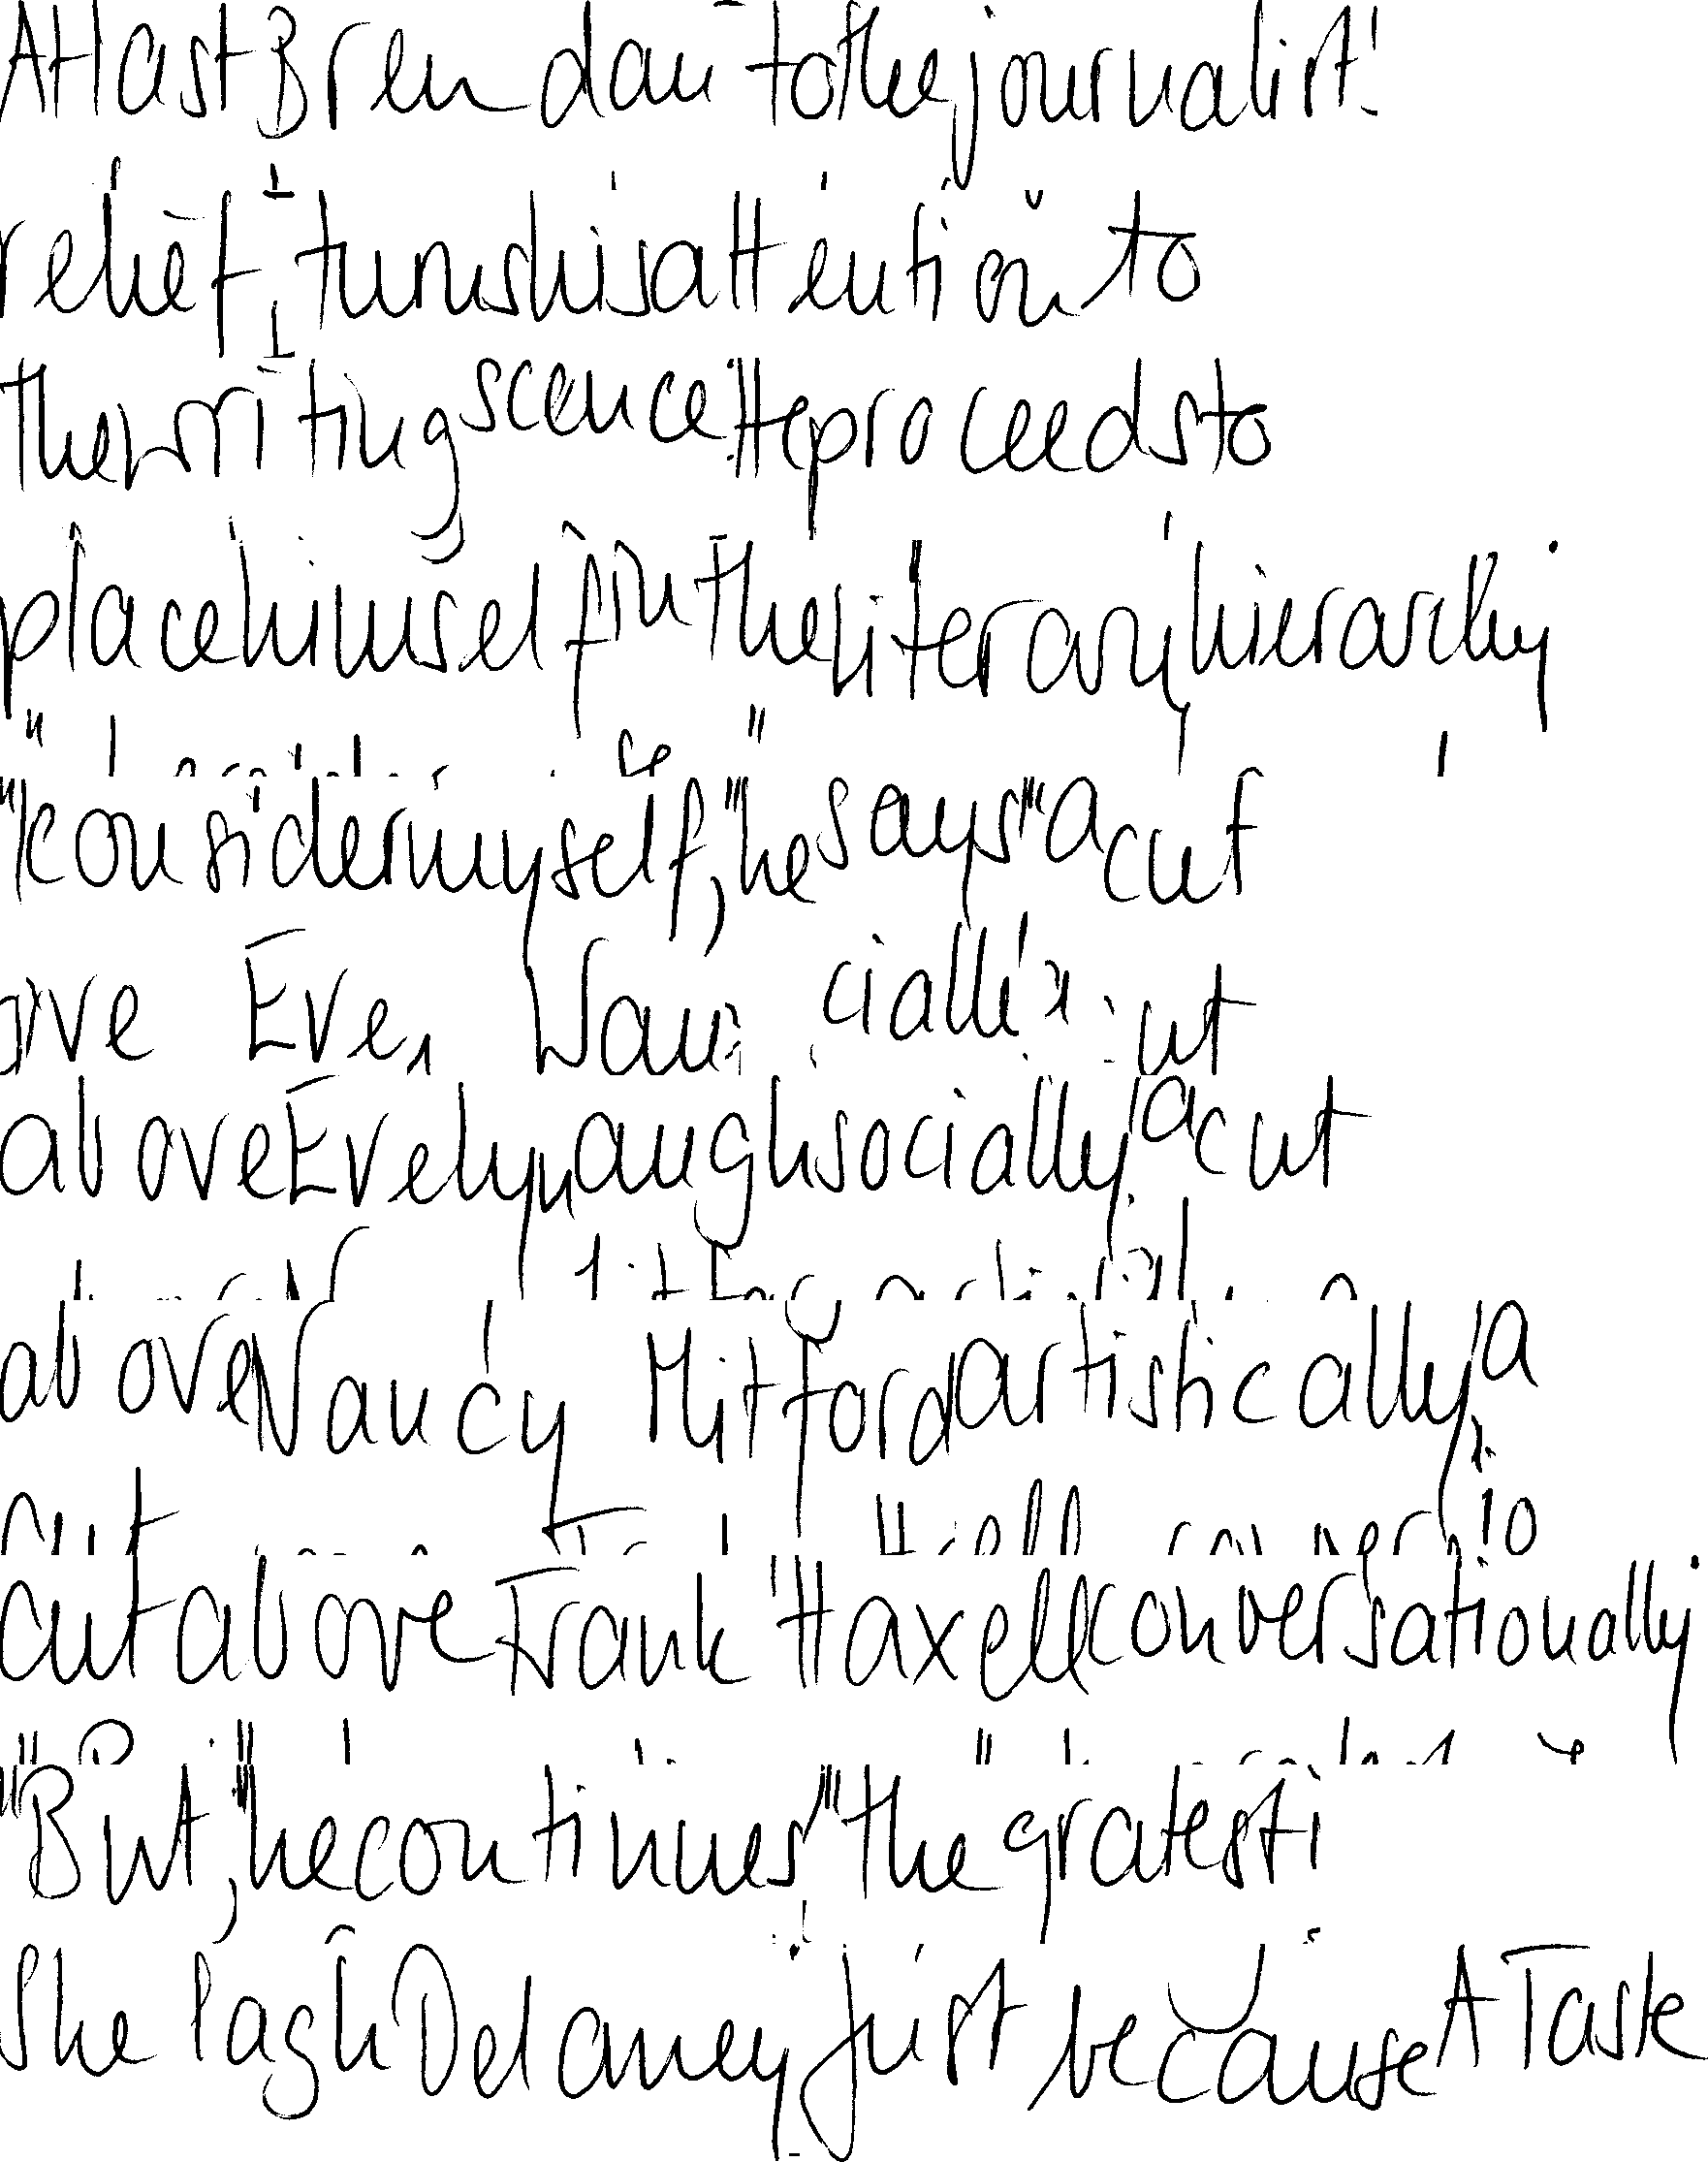 At last Brendan to the journalist'
relief, turns his attention to
the writing scence. He proceeds to
place himself in the literary hierarchy
"I consider myself," he says "a cut
above Evelyn augh socially, a cut
above Nancy Mitford artistically, a
cut above Frank Haxell conversationally
"But," he continues, "the gratest i
She lagh Delaney Just because A Taste